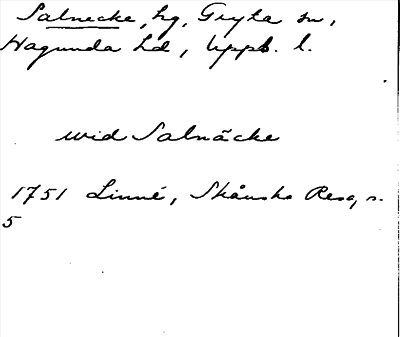 Salnecke, hg, Gryta sn,
Hagunda hd, Uppl. l.
wid Salnäcke
1751 Linné, Skånska Resa, s.
5